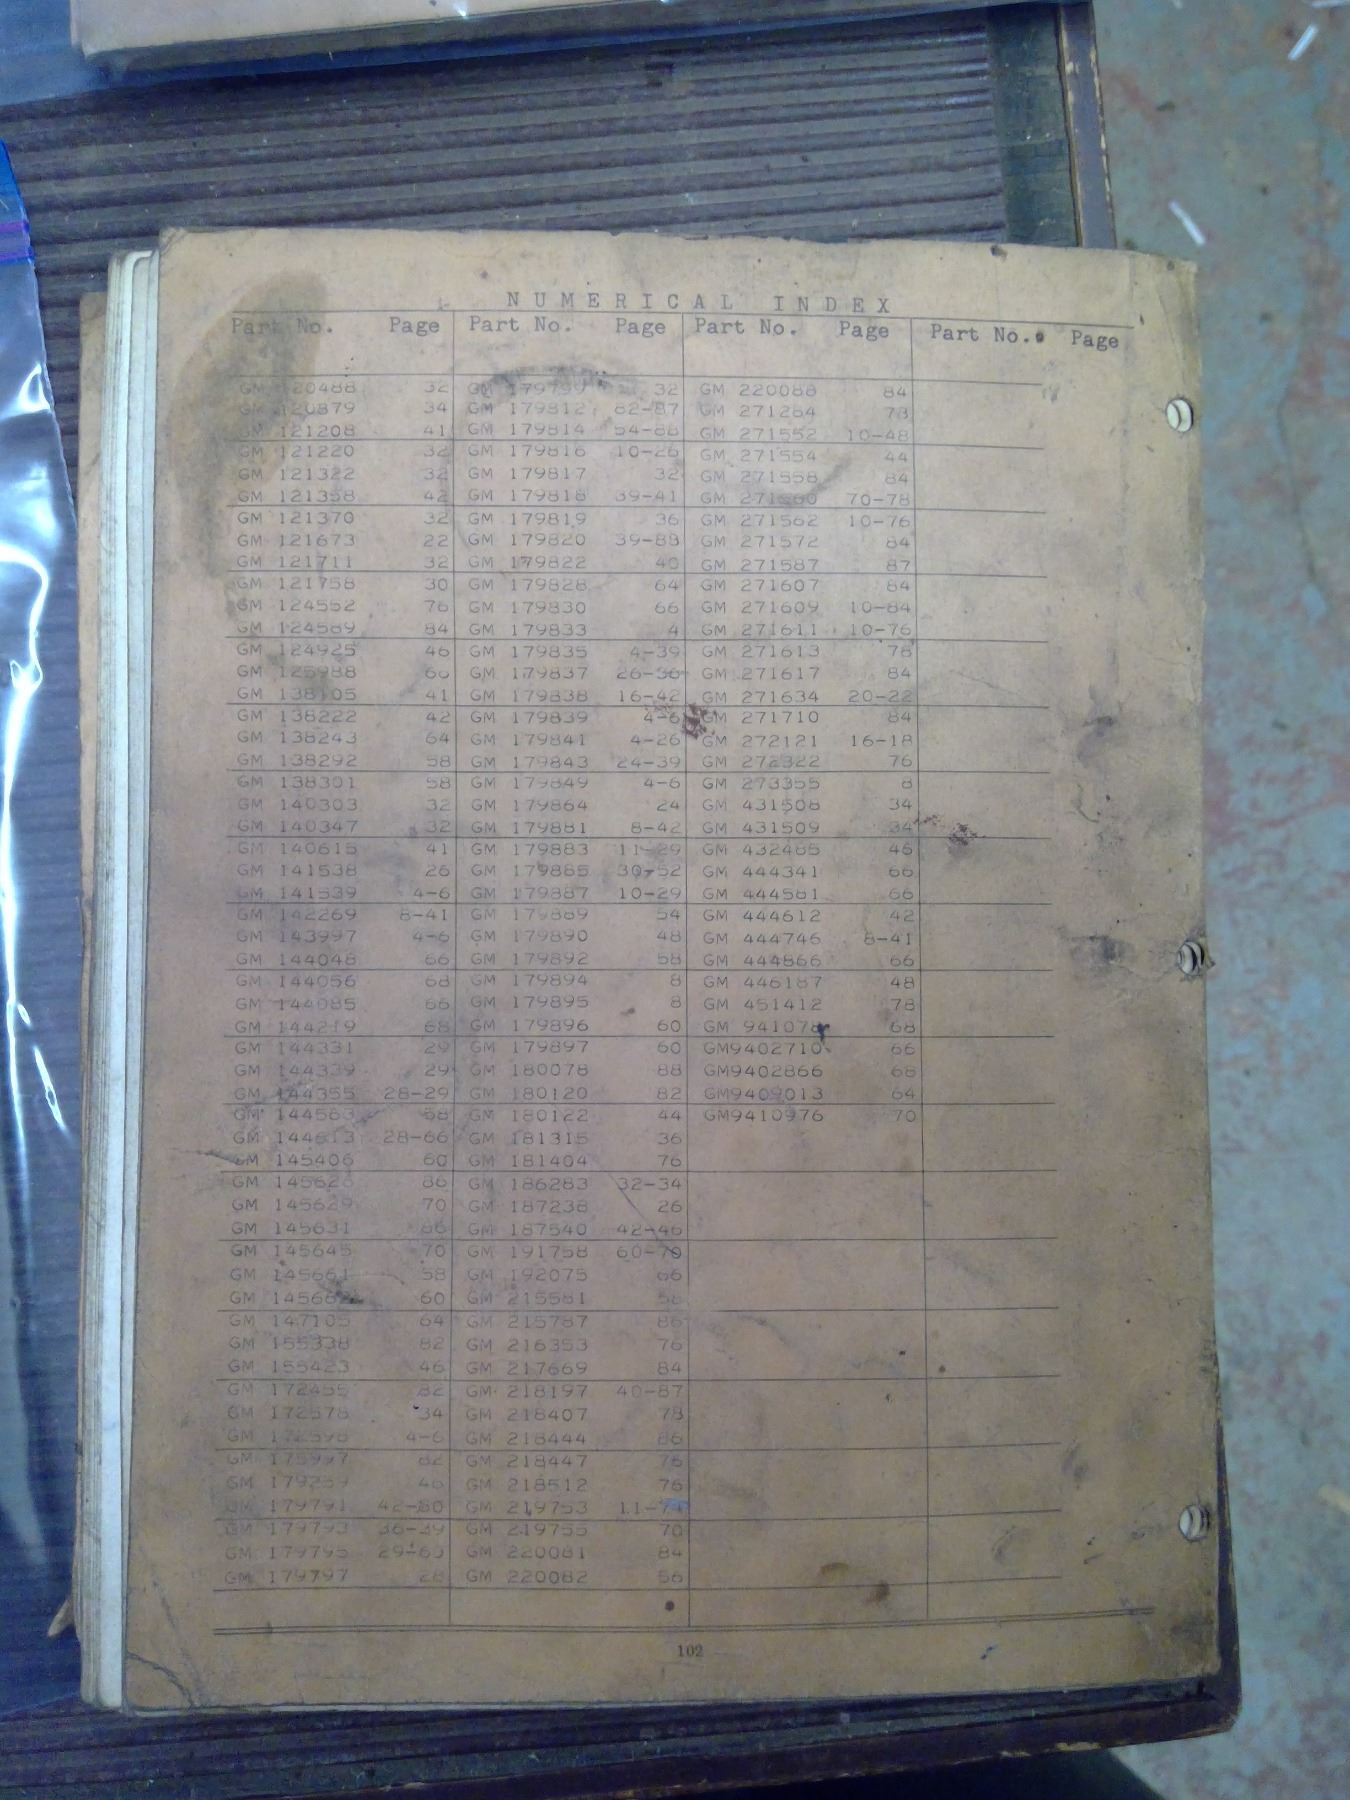 NUMERICAL INDEX
Part No. Page Part No. Page Part No. Page Part No. Page
GM 120488 32 GM 179799 32 GM 220088 84
GM 120879 34 GM 179812 82-87 GM 271284 78
GM 121208 41 GM 179814 54-88 GM 271552 10-48
GM 121220 32 GM 179816 10-26 GM 271554 44
GM 121322 32 GM 179817 32 GM 271558 84
GM 121358 42 GM 179818 39-41 GM 70-78
GM 121370 32 GM 179819 36 GM 271562 10-76
GM 121673 22 GM 179820 39-88 GM 271572 84
GM 121711 32 GM 179822 40 GM 271587 87
GM 121758 30 GM 179828 64 GM 271607 84
GM 124552 76 GM 179830 66 GM 271609 10-84
GM 124589 84 GM 179833 4 GM 271611 10-76
GM 124925 46 GM 179835 4-39 GM 271613 78
GM 125988 GM 179837 26-36 GM 271617 84
GM 138105 41 GM 179838 16-42 GM 271634 20-22
GM 138222 42 GM 179839 4-6 GM 271710 84
GM 138243 64 GM 179841 4-26 GM 272121 16-18
GM 138292 58 GM 179843 24-39 GM 272322 76
GM 138301 58 GM 179849 4-6 GM 273355 8
GM 140303 32 GM 179864 24 GM 431508 34
GM 140347 32 GM 179881 8-42 GM 431509 34
GM 140615 41 GM 179883 11-29 GM 432485 46
GM 141538 26 GM 179885 30-52 GM 444341 66
GM 141539 4-6 GM 179887 10-29 GM 444581 66
GM 142269 8-41 GM 179889 54 GM 444612 42
GM 143997 4-6 GM 179890 48 GM 444746 8-41
GM 144048 66 GM 179892 58 GM 444866 66
GM 144056 68 GM 179894 8 GM 446187 48
GM 144085 66 GM 179895 8 GM 451412 78
GM 144219 68 GM 179896 60 GM 68
GM 144331 29 GM 179897 60 GM9402710 66
GM 144339 29 GM 180078 88 GM9402866 68
GM 144355 28-29 GM 180120 82 GM9409013 64
GM 144583 58 GM 180122 44 GM9410976 70
GM 28-66 GM 181315 36
GM 145406 60 GM 181404 76
GM 86 GM 186283 32-34
GM 145629 70 GM 187238 26
GM 145631 66 GM 187540 42-46
GM 145645 70 GM 191758 60-70
GM 145661 58 GM 192075 66
GM 60 GM 215581
GM 147105 64 GM 215787 86
GM 155338 82 GM 216353 76
GM 155423 46 GM 217669 84
GM 82 GM 218197 40-87
GM 172578 34 GM 218407 78
GM 4-6 GM 218444 86
GM 175997 82 GM 218447 76
GM 46 GM 218512 76
GM 179791 42-80 GM 219753
GM 179793 36-39 GM 219755 70
GM 179795 GM 220081 84
GM 179797 28 GM 220082 56
102